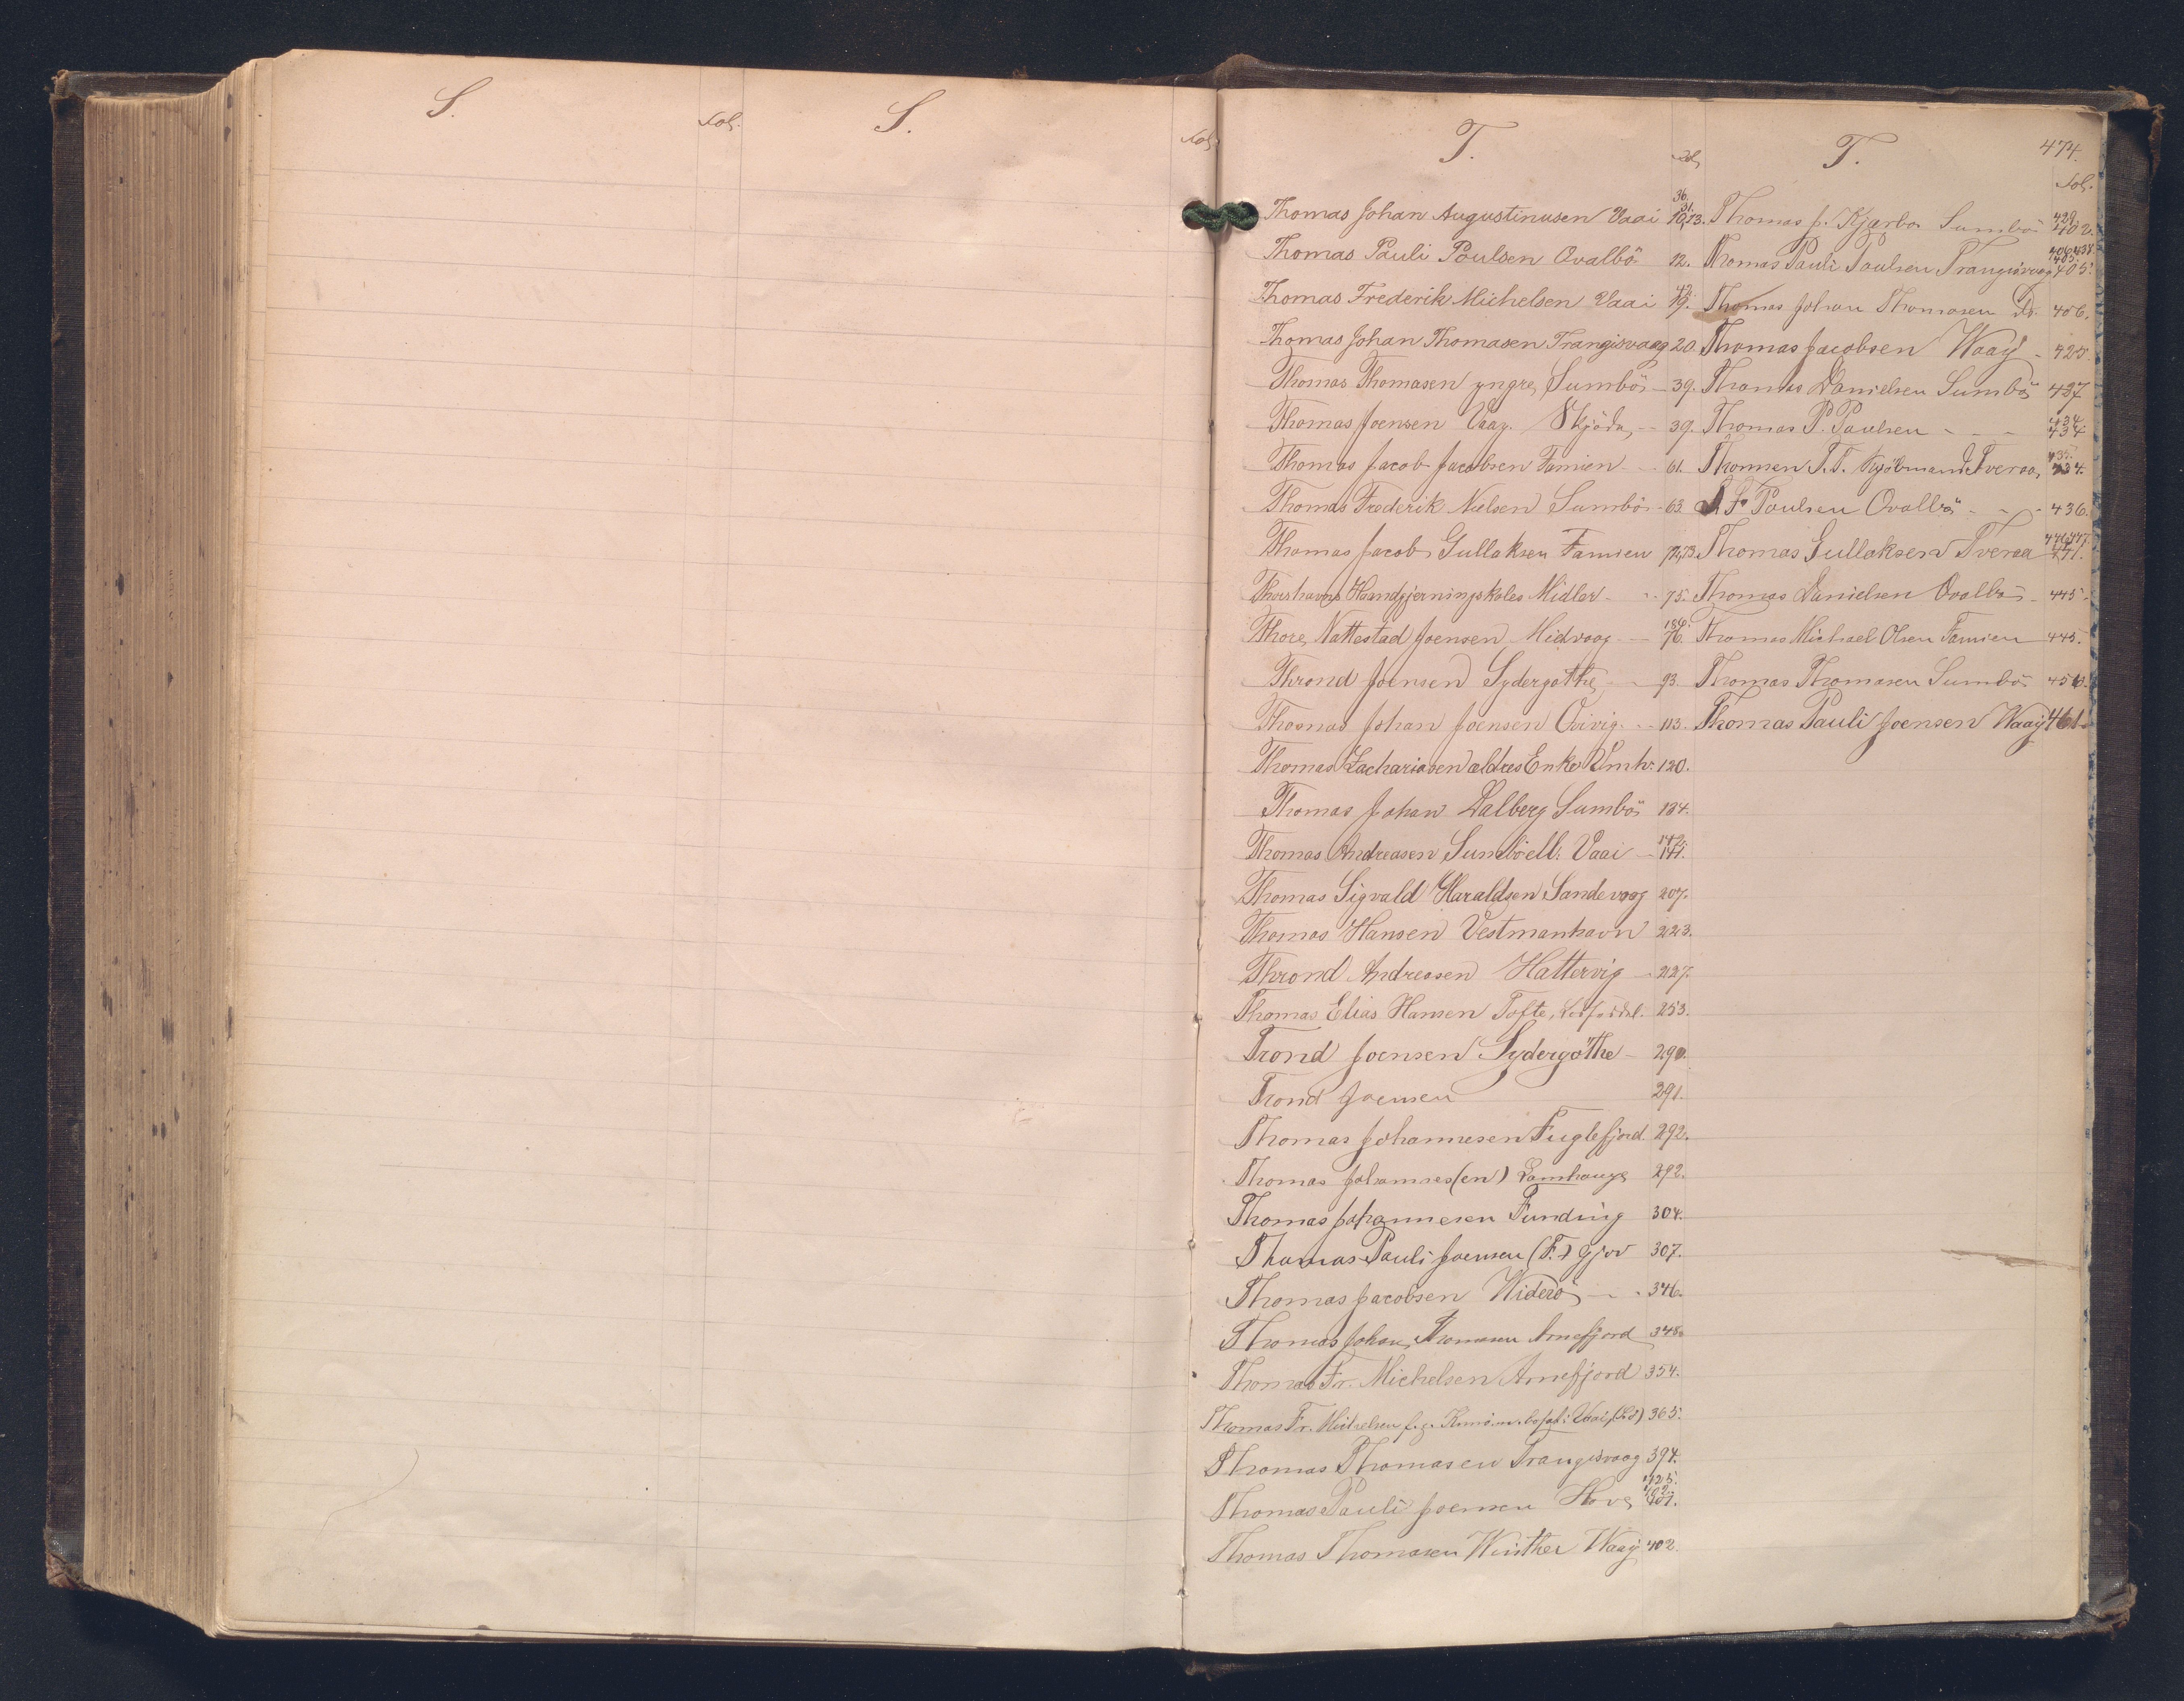 S.
Fol.
S.
Fol.
T.
Fol.
Thomas Johan Augustinusen Vaai 36. 31. 10,13.
Thomas Pauli Poulsen Ovalbö 12.
Thomas Frederik Michelsen Vaai 42. 19.
Thomas Johan Thomasen Trangisvaag 20.
Thomas Thomasen yngre, Sumbö - 39.
Thomas Joensen Vaag. - 39.
Thomas Jacob Jacobsen Famien - 61.
Thomas Frederik Nielsen Sumbö - 63.
Thomas Jacob Gullaksen Famien 72,73.
Thorshavns Haandgjerningskoles Midler - 75.
Thore Nattestad Joensen Midvaag - 184. 76.
Thrond Joensen Sydergöthe, - 93.
Thomas Johan Joensen Qvivig - 113.
Thomas Zachariasen ældres Enke Vmh. 120.
Thomas Johan Dalberg Sumbö 134.
Thomas Andreasen Sumbö ell. Vaai - 142. 141.
Thomas Sigvald Haraldsen Sandevaag 207.
Thomas Hansen Vestmanhavn 223.
Thrond Andreasen Hattervig - 227.
Thomas Elias Hansen Tofte, 253.
Trond Joensen Sydergöthe - 290.
Trond Joensen 291.
Thomas Johannesen Fuglefjord 292.
Thomas Johannes(en) Lamhauge 292.
Thomas Johannesen Funding 304.
Thomas Pauli Joensen (F.) Gjov 307.
Thomas Jacobsen Widerö - - 346.
Thomas Johan Thomasen Arnefjord 348.
Thomas Fr. Michelsen Arnefjord 354.
Thomas Fr. Michelsen Vaai 365.
Thomas Thomasen Trangisvaag 394.
Thomas Pauli Joensen Hove 425. 402. 401.
Thomas Thomasen Winther Waaj 402.
T.
474.
Fol.
Thomas J. Kjærbo Sumbö 429. 402.
Thomas Pauli Poulsen Trangisvaag 405.
Thomas Johan Thomasen Do. 406.
Thomas Jacobsen Waaj - 425.
Thomas Danielsen Sumbö 427
Thomas P. Paulsen - - - 434. 434
Thomsen T.T. Kjöbmand Tveraa, 435. 434.
Poulsen Ovalbö - - - 436.
Thomas Gullaksen Tveraa 446,447. 441.
Thomas Danielsen Ovalbö - 445.
Thomas Michael Olsen Famien - 445.
Thomas Thomasen Sumbö 450.
Thomas Pauli Joensen Waaj 461.